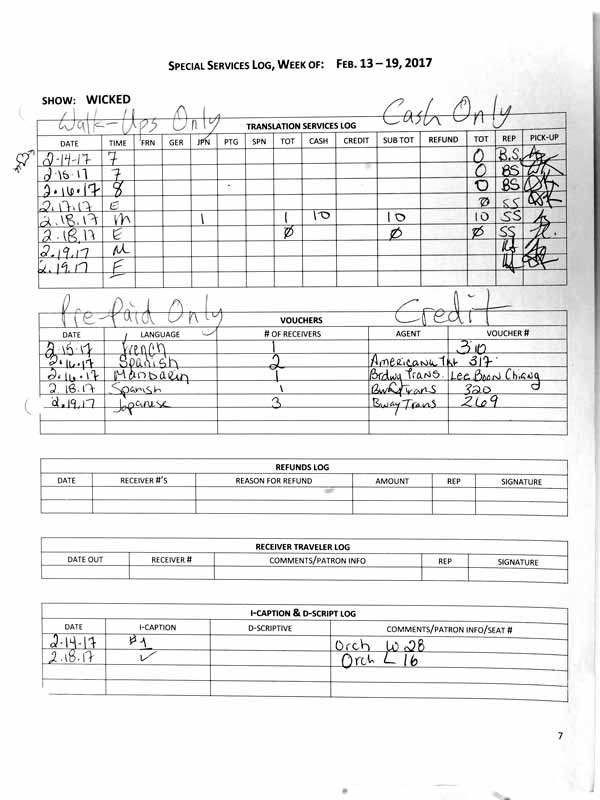 SPECIAL SERVICES LOG, WEEK OF: FEB. 13 – 19, 2017
SHOW: WICKED
Walk-Ups Only Cash Only
TRANSLATION SERVICES LOG
DATE TIME FRN GER JPN PTG SPN TOT CASH CREDIT SUB TOT REFUND TOT REP PICK-UP
2-14-17 7 0 B.S.
2-15-17 7 0 BS
2.16.17 8 0 BS
2.17.17 E Ø SS
2.18.17 M 1 1 10 10 10 SS
2.18.17 E Ø Ø Ø SS
2.19.17 M
2.19.17 E
Pre-Paid Only Credit
VOUCHERS
DATE LANGUAGE # OF RECEIVERS AGENT VOUCHER #
2-15-17 French 1 310
2.16.17 Spanish 2 Americana Tkt 317
2.16.17 Mandarin 1 Brdwy Trans. Lee Boon Chiang
2.18.17 Spanish 1 Bway Trans 320
2.19.17 Japanese 3 Bway Trans 269
REFUNDS LOG
DATE RECEIVER #'S REASON FOR REFUND AMOUNT REP SIGNATURE
RECEIVER TRAVELER LOG
DATE OUT RECEIVER # COMMENTS/PATRON INFO REP SIGNATURE
I-CAPTION & D-SCRIPT LOG
DATE I-CAPTION D-SCRIPTIVE COMMENTS/PATRON INFO/SEAT #
2-14-17 #1 Orch W 28
2.18.17 ✓ Orch L 16
7